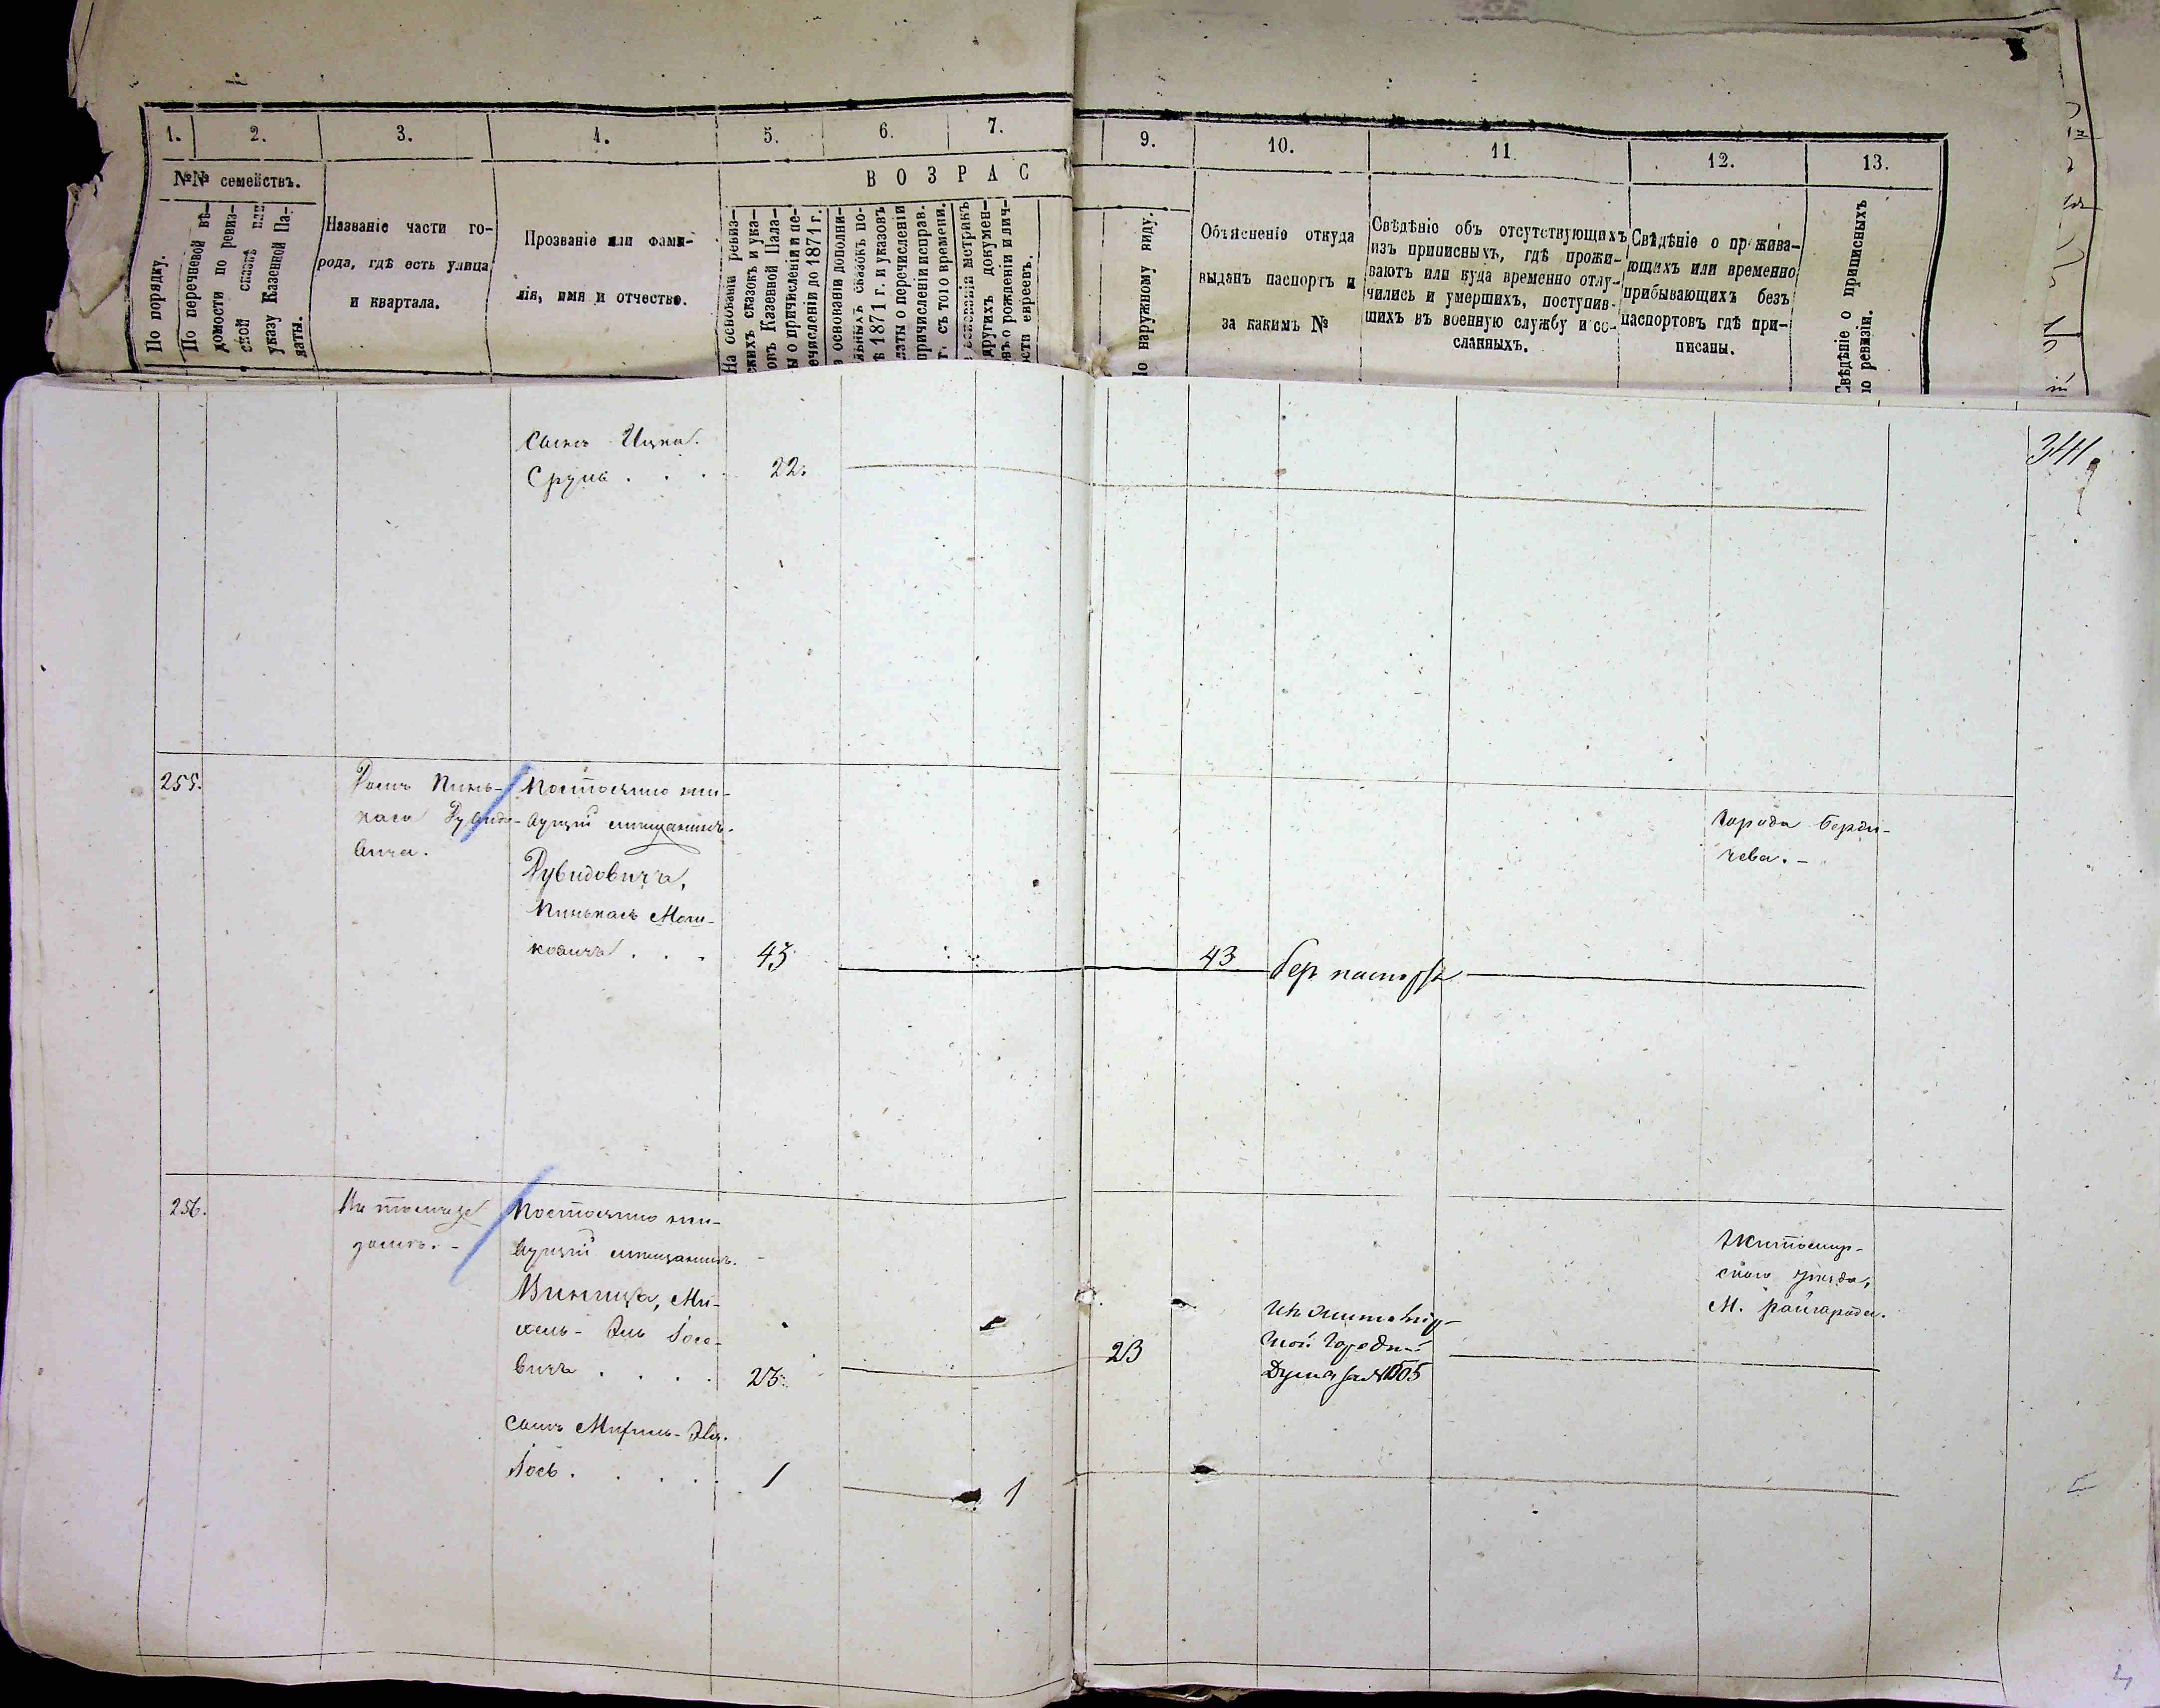 1.
2.
3.
4.
5.
6.
7.
9.
10.
11
12.
13.
№№ семействъ.
В О З Р А С
По порядку.
По перечневой вѣ-
домости по ревиз-
сной сказкѣ или
указу Казенной Па-
латы.
Названіе части го-
рода, гдѣ есть улица
и квартала.
Прозваніе или фами-
лія, имя и отчество.
На основаніи ревиз-
скихъ сказокъ и ука-
овъ Казенной Пала-
ы о причисленіи и пе-
ечисленіи до 1871 г.
а основаніи дополни-
льныхъ сказокъ по-
ѣ 1871 г. и указовъ
латы о перечисленіи
причисленіи исправ.
г. съ того времени.
основаніи метрикъ
другихъ докумен-
въ о рожденіи и лич-
сти евреевъ.
о наружному виду.
Объясненіе откуда
выданъ паспортъ и
за какимъ №
Свѣдѣніе объ отсутствующихъ
изъ приписныхъ, гдѣ прожи-
ваютъ или куда временно отлу-
чились и умершихъ, поступив-
шихъ въ военную службу и со-
сланныхъ.
Свѣдѣніе о прожива-
ющихъ или временно
прибывающихъ безъ
паспортовъ гдѣ при-
писаны.
Свѣдѣніе о приписныхъ
по ревизіи.
341
Сынъ Ицка
Сруль . . . 22.
255.
Домъ Пинь-
каса Дувидо-
вича.
Постоянно жи-
вущій мѣщанинъ.
Дувидовичъ,
Пинькасъ Мош-
ковичъ . . . 43
43
без паспорта
города Берди-
чева. -
256.
На томъ же
домъ. -
Постоянно жи-
вущій мѣщанинъ.
Винница, Ми-
хель- Эль Іосе-
вичъ . . . . 23.
23
Из Житомир-
ской Городской
Думы за № 505
Житомир-
скаго уѣзда,
М. Райгорода.
Сынъ Михель- Эля.
Іось . . . . . 1
1